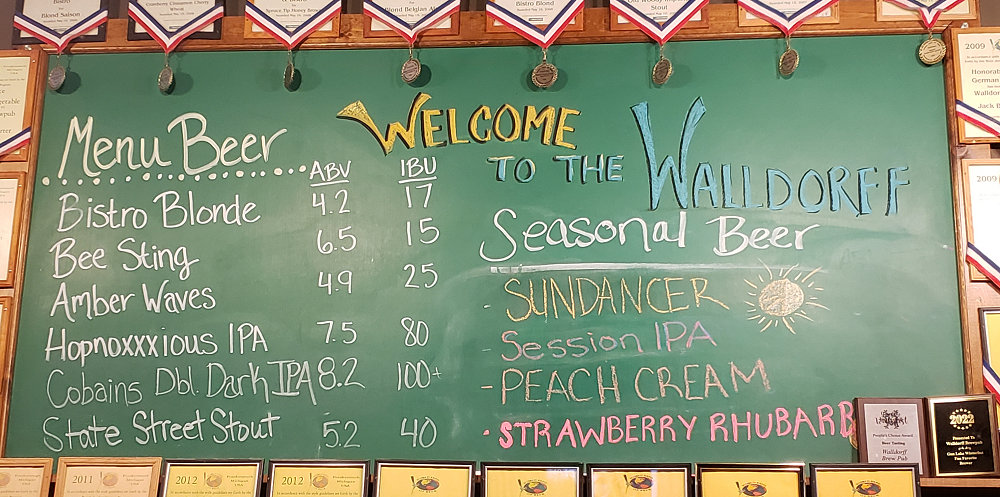 Blond Saison
Cranberry Cinnamon Cherry
Spruce Tip Honey Brown
Bistro
Blond Belgian Ale
Bistro Blond
Stout
2009
German
Jack B
2009
WELCOME
TO THE
WALLDORFF
Menu Beer
ABV IBU
Bistro Blonde 4.2 17
Bee Sting 6.5 15
Amber Waves 4.9 25
Hopnoxxxious IPA 7.5 80
Cobains Dbl. Dark IPA 8.2 100+
State Street Stout 5.2 40
Seasonal Beer
- SUNDANCER
- Session IPA
- PEACH CREAM
- STRAWBERRY RHUBARB
People's Choice Award
Beer Tasting
Walldorff
Brew Pub
2022
Presented To
Walldorff Brewpub
Gun Lake Winterfest
Fan Favorite
Brewer
2011
2012
2012